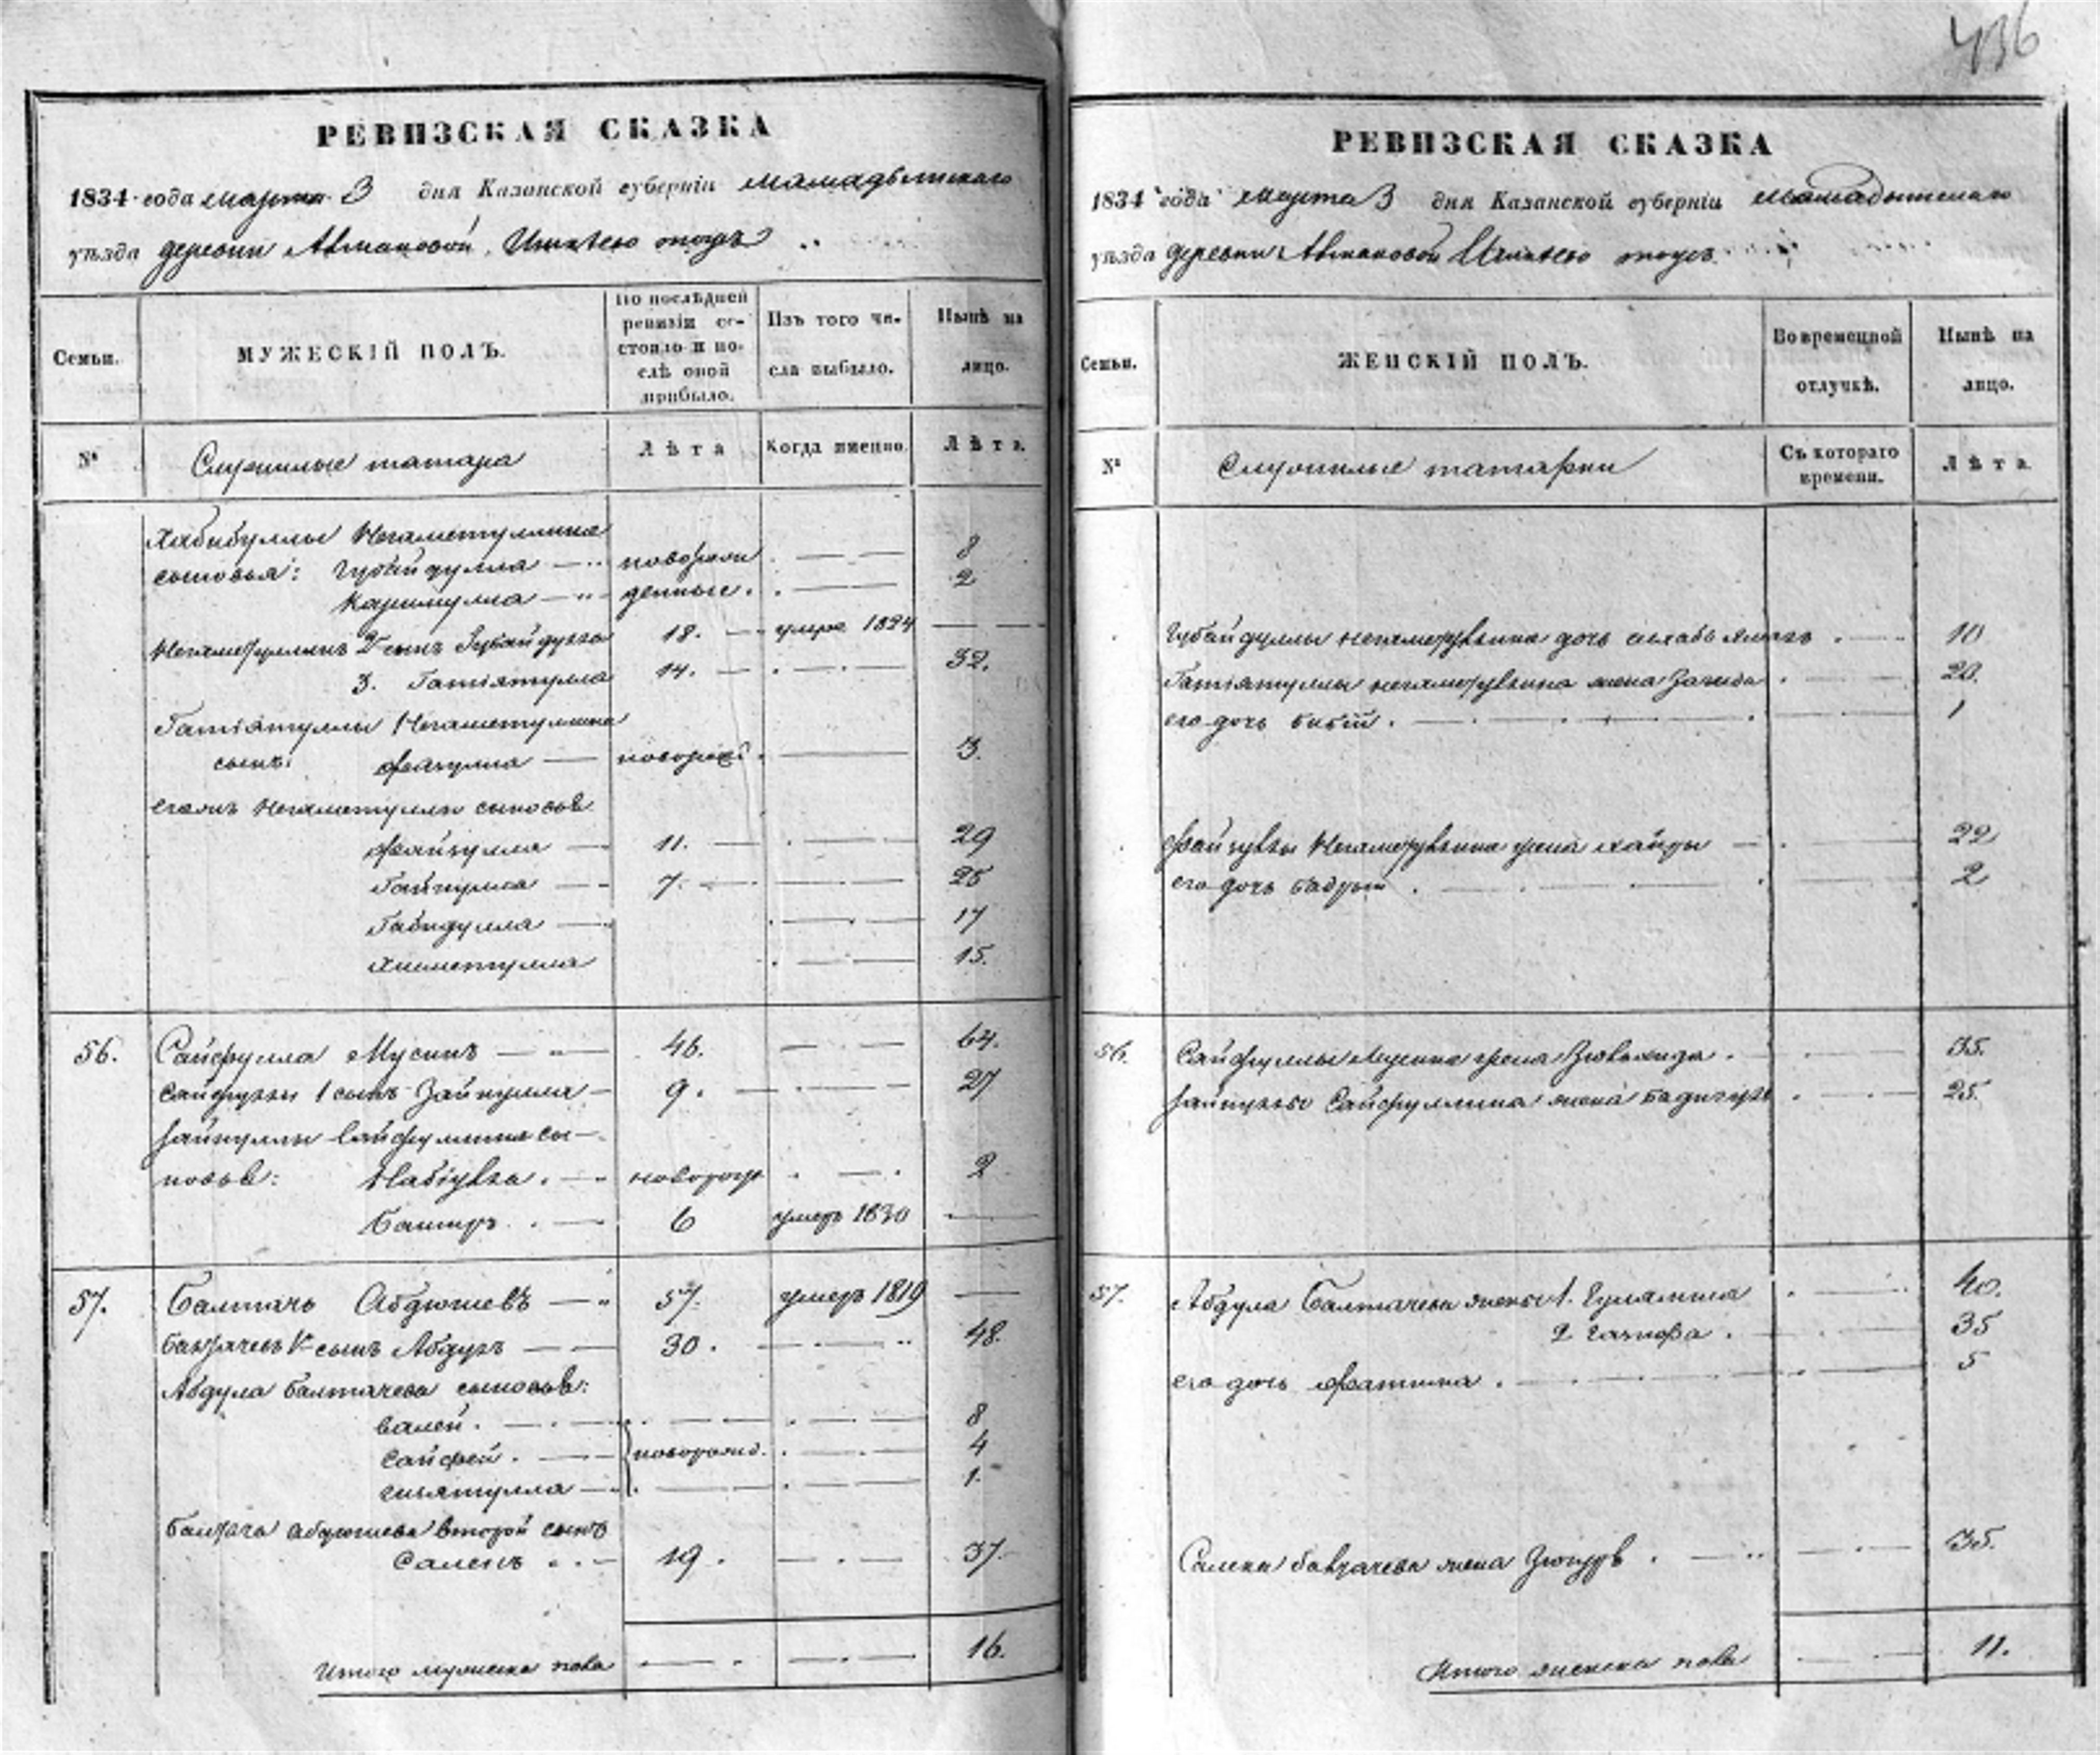 436
РЕВИЗСКАЯ СКАЗКА
1834 года марта 3 дня Казанской губерніи Мамадышскаго
уѣзда деревни Алмаковой, тожъ
Семьи.
МУЖЕСКІЙ ПОЛЪ.
По послѣдней ревизіи состояло и послѣ оной прибыло.
Изъ того числа выбыло.
Нынѣ на лицо.
№
Служилые татара
Лѣта
Когда именно.
Лѣта.
Хабибуллы Негаметуллина
сыновья: Губайдулла новорож 8
Каримулла денные. 2
Негаметуллинъ 2й сынъ Губайдулла 18. умре 1824
3. Гатіятулла 14. 32.
Гатіятуллы Негаметуллина
сынъ: новорож. 3.
егожъ Негаметуллы сыновья
Файзулла 11. 29
Гайнулла 7. 25
Габидулла 17
Хисметулла 15.
56. Сайфулла Мусинъ 46. 64.
Сайфуллы 1 сынъ Зайнулла 9. 27
Зайнуллы Сайфуллина сы-
новья: Набіулла. новорожд 2
Баширъ. 6 умеръ 1830
57. Балтачь Абдюшевъ 57. умеръ 1819
Балтачевъ 1й сынъ Абдулъ 30. 48.
Абдула Балтачева сыновья:
Валей. 8
Сайфей. новорожд. 4
1.
Балтача Абдюшева второй сынъ
Салехъ 19. 37.
Итого мужеска пола 16.
РЕВИЗСКАЯ СКАЗКА
1834 года Марта 3 дня Казанской губерніи Мамадышскаго
уѣзда деревни Алмаковой тожъ
Семьи.
ЖЕНСКІЙ ПОЛЪ.
Во временной отлучкѣ.
Нынѣ на лицо.
№
Служилые татарки
Съ котораго времени.
Лѣта
Губайдуллы Негаметуллина дочь 10
Гатіятуллы Негаметуллина жена 20.
его дочь 1
Файзуллы Негаметуллина жена 22
его дочь 2
56. Сайфуллы Мусина жена 35.
Зайнуллы Сайфуллина жена 25.
57. Абдула Балтачева жены 1. 40.
2 35
его дочь Фатима. 5
Салеха Балтачева жена 35.
Итого женска пола 11.